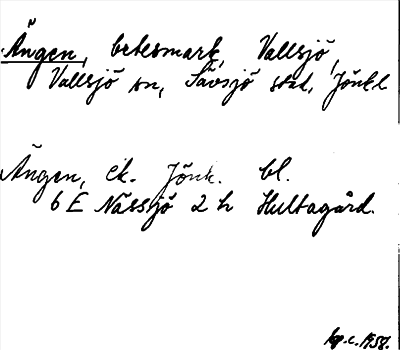 Ängen, betesmark, Vallsjö,
Vallsjö sn, Sävsjö stad, Jönk l
Ängen, ek. Jönk. bl.
6 E Nässjö 2 h Hultagård.
kp.c. 1958.